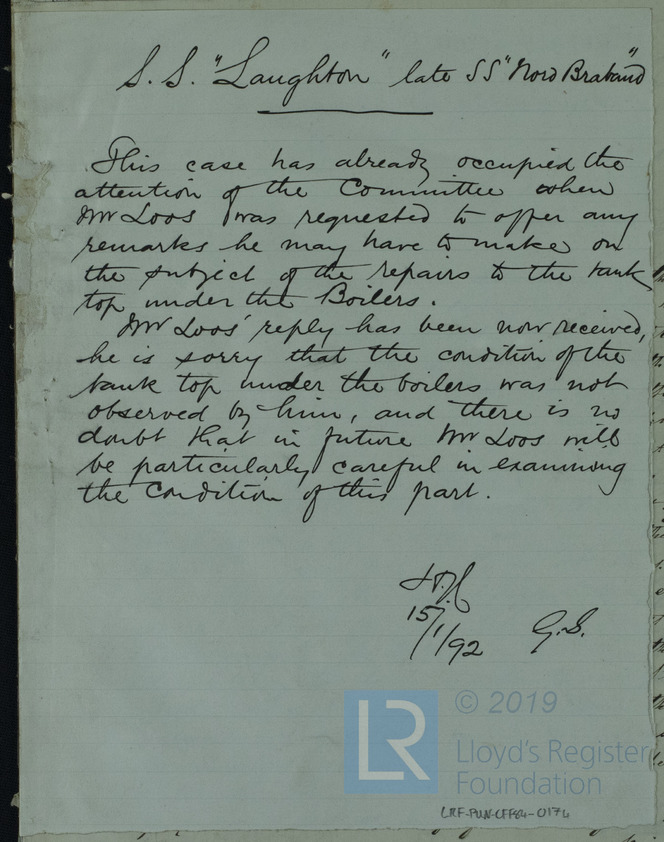 S.S. "Laughton" late SS "Nord Braband"
This case has already occupied the
attention of the Committee when
Mr Loos was requested to offer any
remarks he may have to make on
the subject of the repairs to the tank
top under the Boilers.
Mr Loos' reply has been now received,
he is sorry that the condition of the
tank top under the boilers was not
observed by him, and there is no
doubt that in future Mr Loos will
be particularly careful in examining
the condition of this part.
15/1/92
G.S.
LR
© 2019
Lloyd's Register
Foundation
LRF-PUN-LFF84-0174